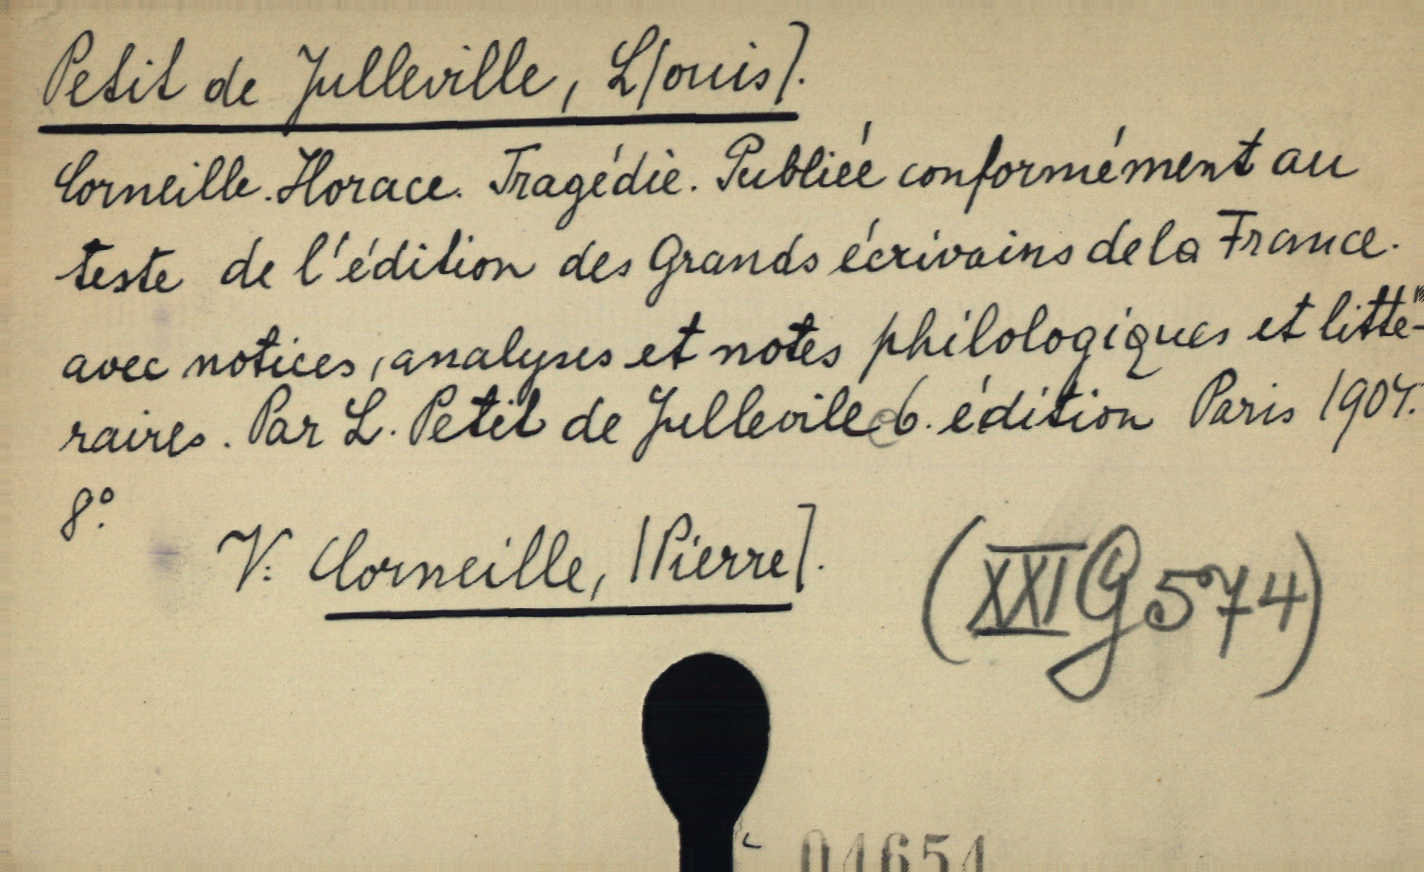 Petit de Julleville, L[ouis].
Corneille. Horace. Tragédie. Publiée conformément au
teste de l'édition des Grands écrivains de la France.
avec notices, analyses et notes philologiques et litté-
raires. Par L. Petit de Jullevile 6. édition Paris 1907.
8°.
V: Corneille, [Pierre].
(XXI G 574)
04654